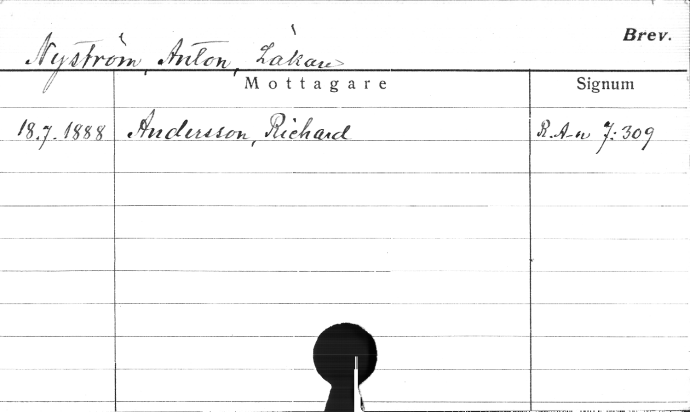 Brev.
Nyström, Anton, Läkare
Mottagare Signum
18.7.1888 Andersson, Richard R.A-n 7:309